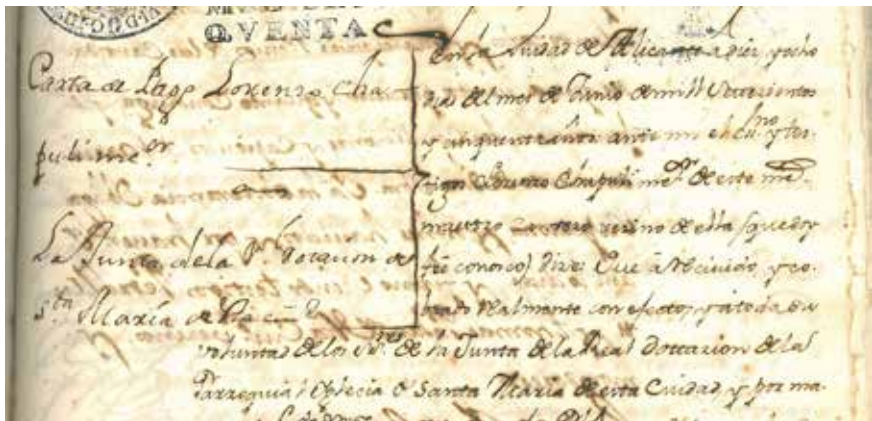 QVENTA
Carta de Pago Lorenzo Cha
puli me.or
La Junta dela R.l Dotacion de
S.ta Maria de la
En la Ciudad de Alicante a diez y ocho
dias del mes de Junio de mill Setecientos
y cinquenta años: ante mi el Ess.no y tes-
tigos Lorenzo Chapuli me.or de este
maestro Cantero vezino de ella (que doy
fee conosco) dixo: Que à Recivido, y co-
brado Realmente con efecto, y à toda su
voluntad delos S.res de la Junta dela Real Dottazion dela
Parroquial Yglecia de Santa Maria de esta Ciudad, y por ma-